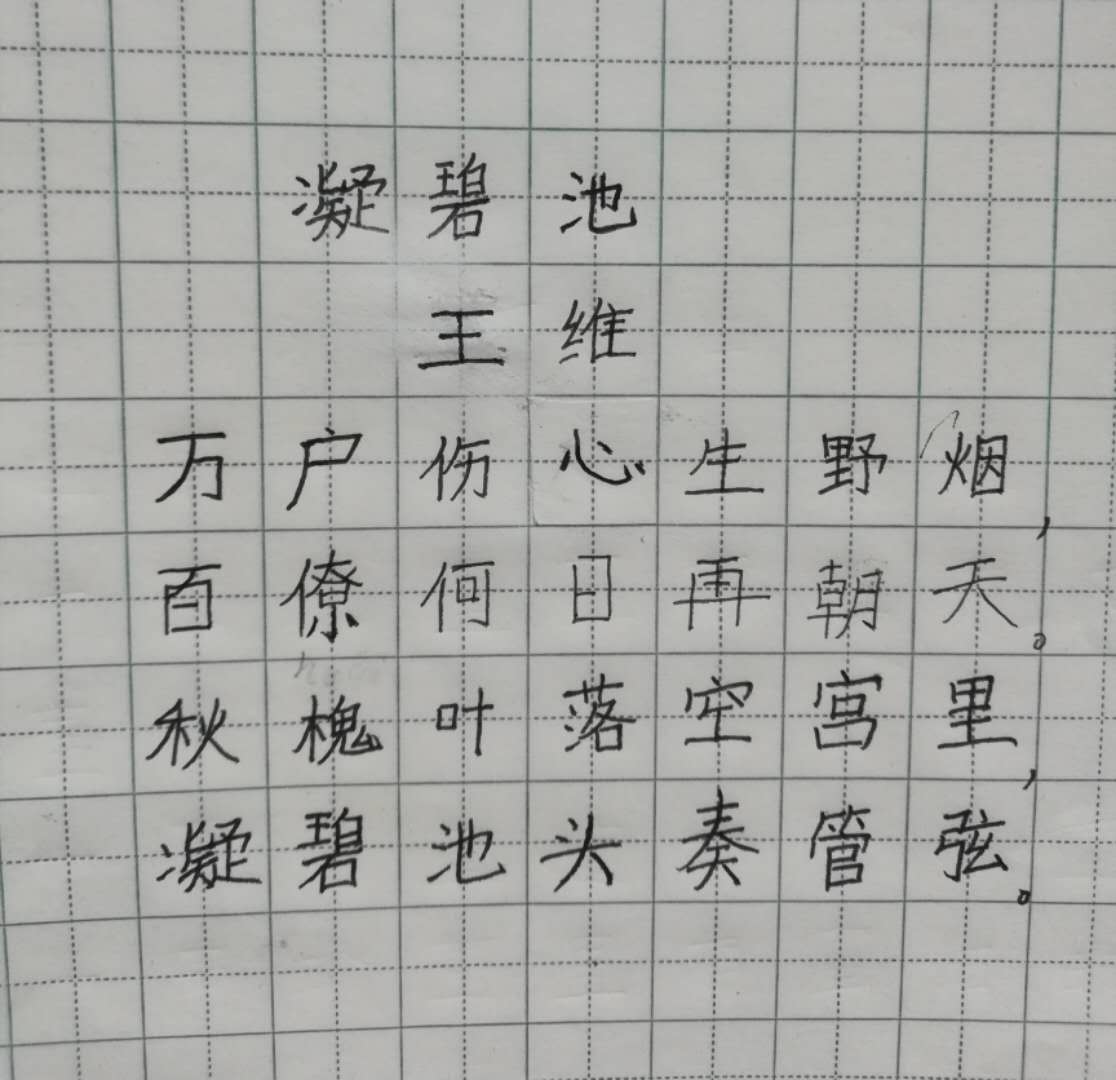 凝碧池
王维
万户伤心生野烟，
百僚何日再朝天。
秋槐叶落空宫里，
凝碧池头奏管弦。